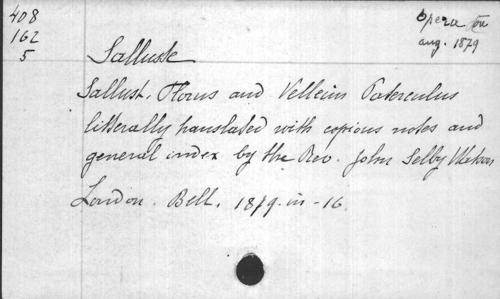 408
162
5
Opera
aug. 1879
Salluste
Sallust, Florus and Velleius Paterculus
litterally translated with copious notes and
general index by the Rev. John Selby Watson
London. Bell. 1879. in-16.